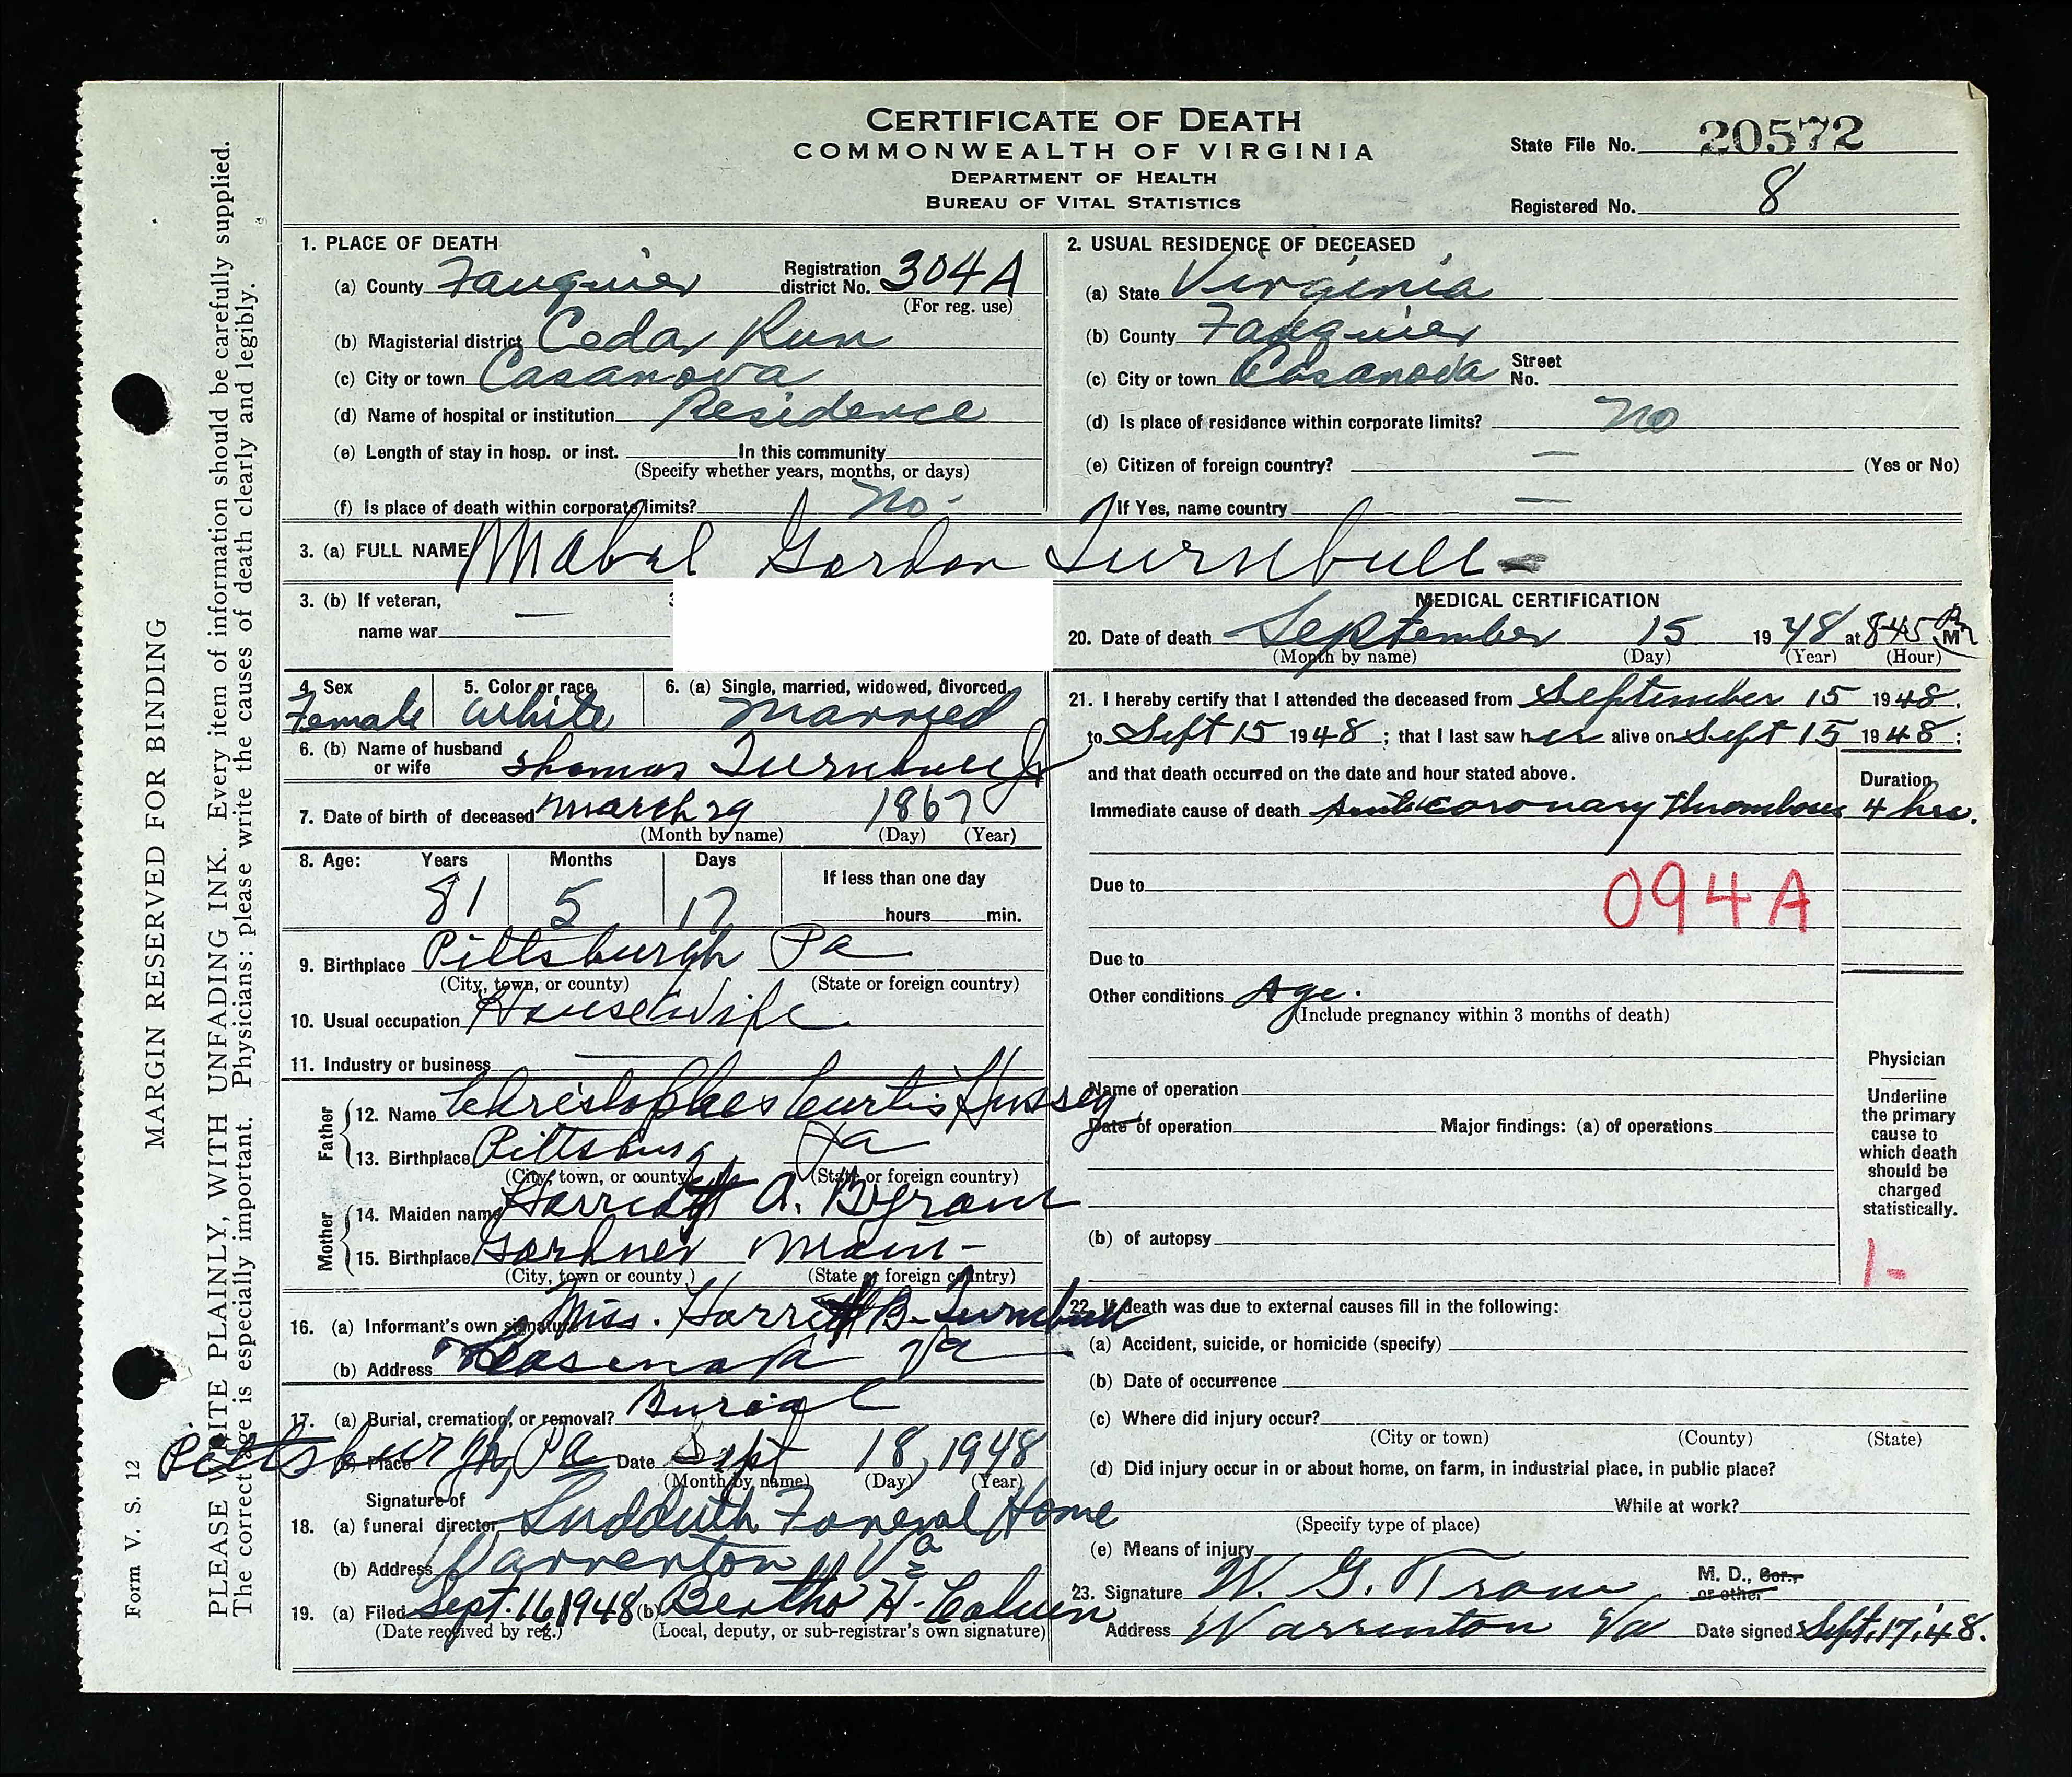 CERTIFICATE OF DEATH
COMMONWEALTH OF VIRGINIA
DEPARTMENT OF HEALTH
BUREAU OF VITAL STATISTICS
State File No. 20572
Registered No. 8
MARGIN RESERVED FOR BINDING
PLEASE WRITE PLAINLY, WITH UNFADING INK. Every item of information should be carefully supplied.
The correct age is especially important. Physicians: please write the causes of death clearly and legibly.
Form V. S. 12
1. PLACE OF DEATH
(a) County Fauquier Registration district No. 304A
(For reg. use)
(b) Magisterial district Cedar Run
(c) City or town Casanova
(d) Name of hospital or institution Residence
(e) Length of stay in hosp. or inst. In this community
(Specify whether years, months, or days)
(f) Is place of death within corporate limits? No
2. USUAL RESIDENCE OF DECEASED
(a) State Virginia
(b) County Fauquier
(c) City or town Casanova Street No.
(d) Is place of residence within corporate limits? No
(e) Citizen of foreign country? — (Yes or No)
If Yes, name country —
3. (a) FULL NAME Mabel Gordon Turnbull
3. (b) If veteran,
name war —
4. Sex Female
5. Color or race White
6. (a) Single, married, widowed, divorced Married
6. (b) Name of husband or wife Thomas Turnbull Jr
7. Date of birth of deceased March 29 1867
(Month by name) (Day) (Year)
8. Age: Years Months Days
81 5 17
If less than one day
hours min.
9. Birthplace Pittsburgh Pa
(City, town, or county) (State or foreign country)
10. Usual occupation Housewife
11. Industry or business —
Father
12. Name Christopher Curtis Hussey
13. Birthplace Pittsburg Pa
(City, town, or county) (State or foreign country)
Mother
14. Maiden name Harriett A. Byram
15. Birthplace Gardner Main-
(City, town or county) (State or foreign country)
16. (a) Informant's own signature Miss. Harriett B. Turnbull
(b) Address Casanova Va
17. (a) Burial, cremation, or removal? Burial
(b) Place Pittsburgh, Pa Date Sept 18, 1948
(Month by name) (Day) (Year)
Signature of
18. (a) funeral director Sudduth Funeral Home
(b) Address Warrenton Va
19. (a) Filed Sept. 16 1948 (b) Bertha H.
(Date received by reg.) (Local, deputy, or sub-registrar's own signature)
MEDICAL CERTIFICATION
20. Date of death September 15 1948 at 845 Pm M
(Month by name) (Day) (Year) (Hour)
21. I hereby certify that I attended the deceased from September 15 1948,
to Sept 15 1948; that I last saw her alive on Sept 15 1948;
and that death occurred on the date and hour stated above.
Duration
Immediate cause of death coronary thrombosis 4 hrs.
Due to
094A
Due to
Other conditions Age.
(Include pregnancy within 3 months of death)
Name of operation
Date of operation Major findings: (a) of operations
(b) of autopsy
Physician
Underline
the primary
cause to
which death
should be
charged
statistically.
1-
22. If death was due to external causes fill in the following:
(a) Accident, suicide, or homicide (specify)
(b) Date of occurrence
(c) Where did injury occur?
(City or town) (County) (State)
(d) Did injury occur in or about home, on farm, in industrial place, in public place?
While at work?
(Specify type of place)
(e) Means of injury
23. Signature W. G. Trow M. D., Cor., or other
Address Warrenton Va Date signed Sept. 17, 48.